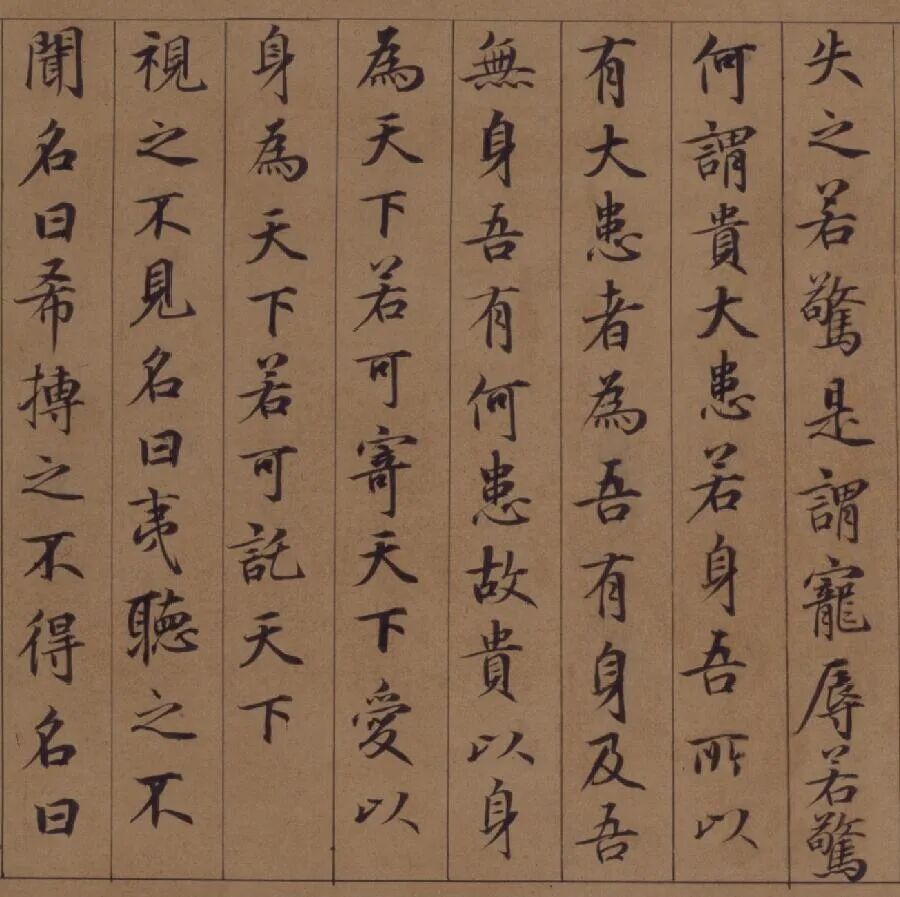 失之若驚是謂寵辱若驚
何謂貴大患若身吾所以
有大患者為吾有身及吾
無身吾有何患故貴以身
為天下若可寄天下愛以
身為天下若可託天下
視之不見名曰夷聽之不
聞名曰希搏之不得名曰